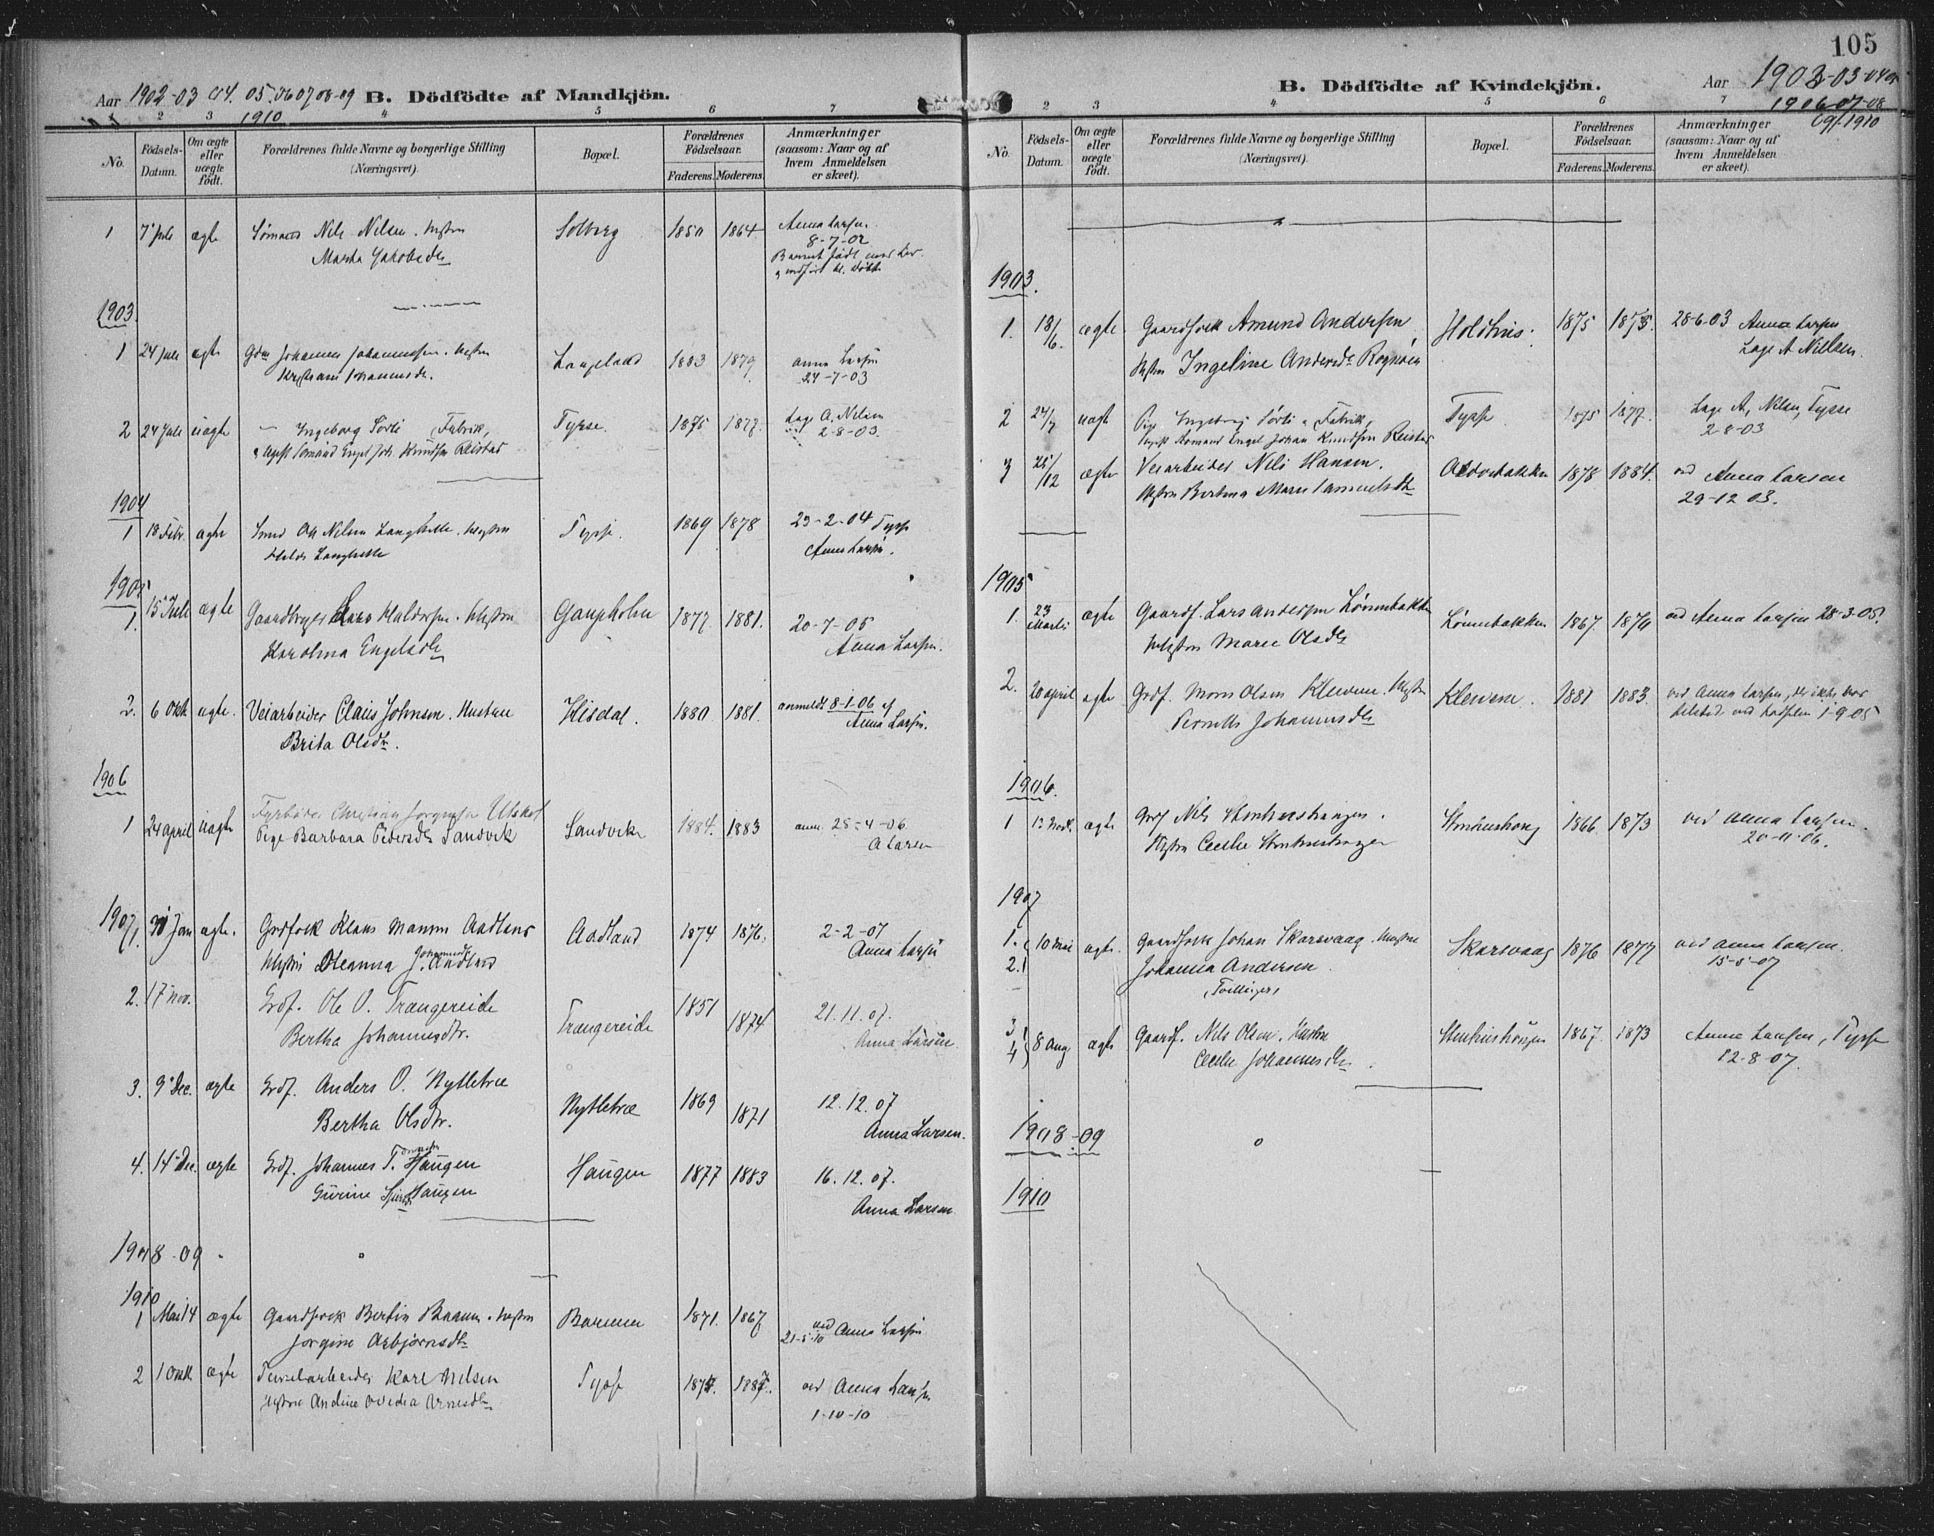 105
Aar 1902-03 04. 05. 06 07 08-09 B. Dödfödte af Mandkjön.
1910
2 3 4 5 6 7
No.
Födsels-Datum.
Om ægte eller uægte födt.
Forældrenes fulde Navne og borgerlige Stilling
(Næringsvei).
Bopæl.
Forældrenes Födselsaar.
Faderens. Moderens.
Anmærkninger
(saasom: Naar og af
hvem Anmeldelsen
er skeet).
1 7 Juli ægte Sømand Nils Nilsen. Hustru Solberg 1850 1864 Anna Larsen.
8-7-02
Martha Jakobsdtr
Barnet født
1903.
1 24 Juli ægte Johannes Johannessen. Hustru Langeland 1883 1879 Anna Larsen
24-7-03
2 24 Juli uægte Ingeborg Sørli Fabrik, Tysse. 1875 1877. Læge A. Nilsen
2-8-03.
Sømand Engel Joh. Knudsen Reistad
1904
1 18 Febr. ægte Smed Nilsen Langhelle. Hustru Tysse. 1869 1878 23-2-04 Tysse
Langhelle Anna Larsen.
1905
1. 15 Juli ægte Gaardbruger Haldorsen. Hustru Gaupholm 1877 1881. 20-7-05
Karolina Engelsdtr Anna Larsen.
2. 6 Okt ægte. Veiarbeider Claus Johnsen. Hustru Hisdal. 1880 1881. anmeldt 8-1-06 af
Brita Olsdtr. Anna Larsen.
1906
1 24 april uægte Fyrbøder Christian Jørgensen Sandvik 1884. 1883 anm. 28-4-06
Pige Barbara Pedersdtr Sandvik A Larsen
1907
1. 31 Jan ægte. Grdfolk Klaus Monsen Aadland Aadland 1874 1876. 2-2-07
Hustru Oleanna Johannesdtr Aadland Anna Larsen
2. 17 nov. Grdf. Ole O. Trangereide Trangereide 1851 1874 21.11.07.
Bertha Johannesdtr. Anna Larsen
3. 9 Dec. ægte Grdf. Anders O. Nyttetræ Nyttetræ 1869 1871 12.12.07
Bertha Olsdtr. Anna Larsen.
4. 14 Dec. ægte Grdf. Johannes T. Haugen Haugen 1877 1883 16.12.07.
Gurine Haugen Anna Larsen
1908-09
1910
1 Mai 14 ægte Gaardfolk Bertin Hustru 1871. 1867 ved Anna Larsen
21-5-10
Jorgine Asbjørnsdtr
2 1 Okt ægte arbeider Karl Nilsen Tysse ved Anna Larsen
Hustru Andine Ovedia Arnesdtr 1-10-10
B. Dödfödte af Kvindekjön. Aar 1902-03-04
1906 07-08
09/1910
2 3 4 5 6 7
No.
Födsels-Datum.
Om ægte eller uægte födt.
Forældrenes fulde Navne og borgerlige Stilling
(Næringsvei).
Bopæl.
Forældrenes Födselsaar.
Faderens. Moderens.
Anmærkninger
(saasom: Naar og af
hvem Anmeldelsen
er skeet).
1903.
1. 18/6. ægte Gaardfolk Amund Andersen Holdhus. 1875 28-6-03 Anna Larsen
Hustru Ingeline Andersdtr Læge A Nielsen.
2 24/7 uægte Pige Ingeborg Sørli Fabrik, Tysse. 1875 1877. Læge A. Nilsen, Tysse
Sømand Engel Johan Knudsen Reistad 2-8-03
3 /12 ægte Veiarbeider Nils Hansen. 1878 1884. ved Anna Larsen
Hustru Marie Samuelsdtr 29-12 03.
1905
1. 23 Marts ægte Gaardf. Lars Andersen Lønnebakken Lønnebakken 1867. ved Anna Larsen 28-3-05.
Hustru Marie Olsdtr
2. 20 april ægte Grdf. Mons Olsen Klevene. Hustru Klevene. 1881 1883. ved Anna Larsen, der ikke var
Pernille Johannesdtr 1-9-05
1906.
1 ægte Grdf Nils 1866. 1873 ved Anna Larsen.
Hustru Cecilie 20-11-06.
1907
1. 2. 10 Mai ægte. Gaardfolk Johan Skarsvaag. Hustru Skarsvaag 1876 1877 ved Anna Larsen.
Johanna Andersen 15-5-07
(Tvillinger)
3 4 8 Aug ægte Gaardf. Nils Olsen. Hustru 1867. 1873 Anna Larsen, Tysse
Cecilie Johannesdtr. 12-8-07.
1908-09
1910